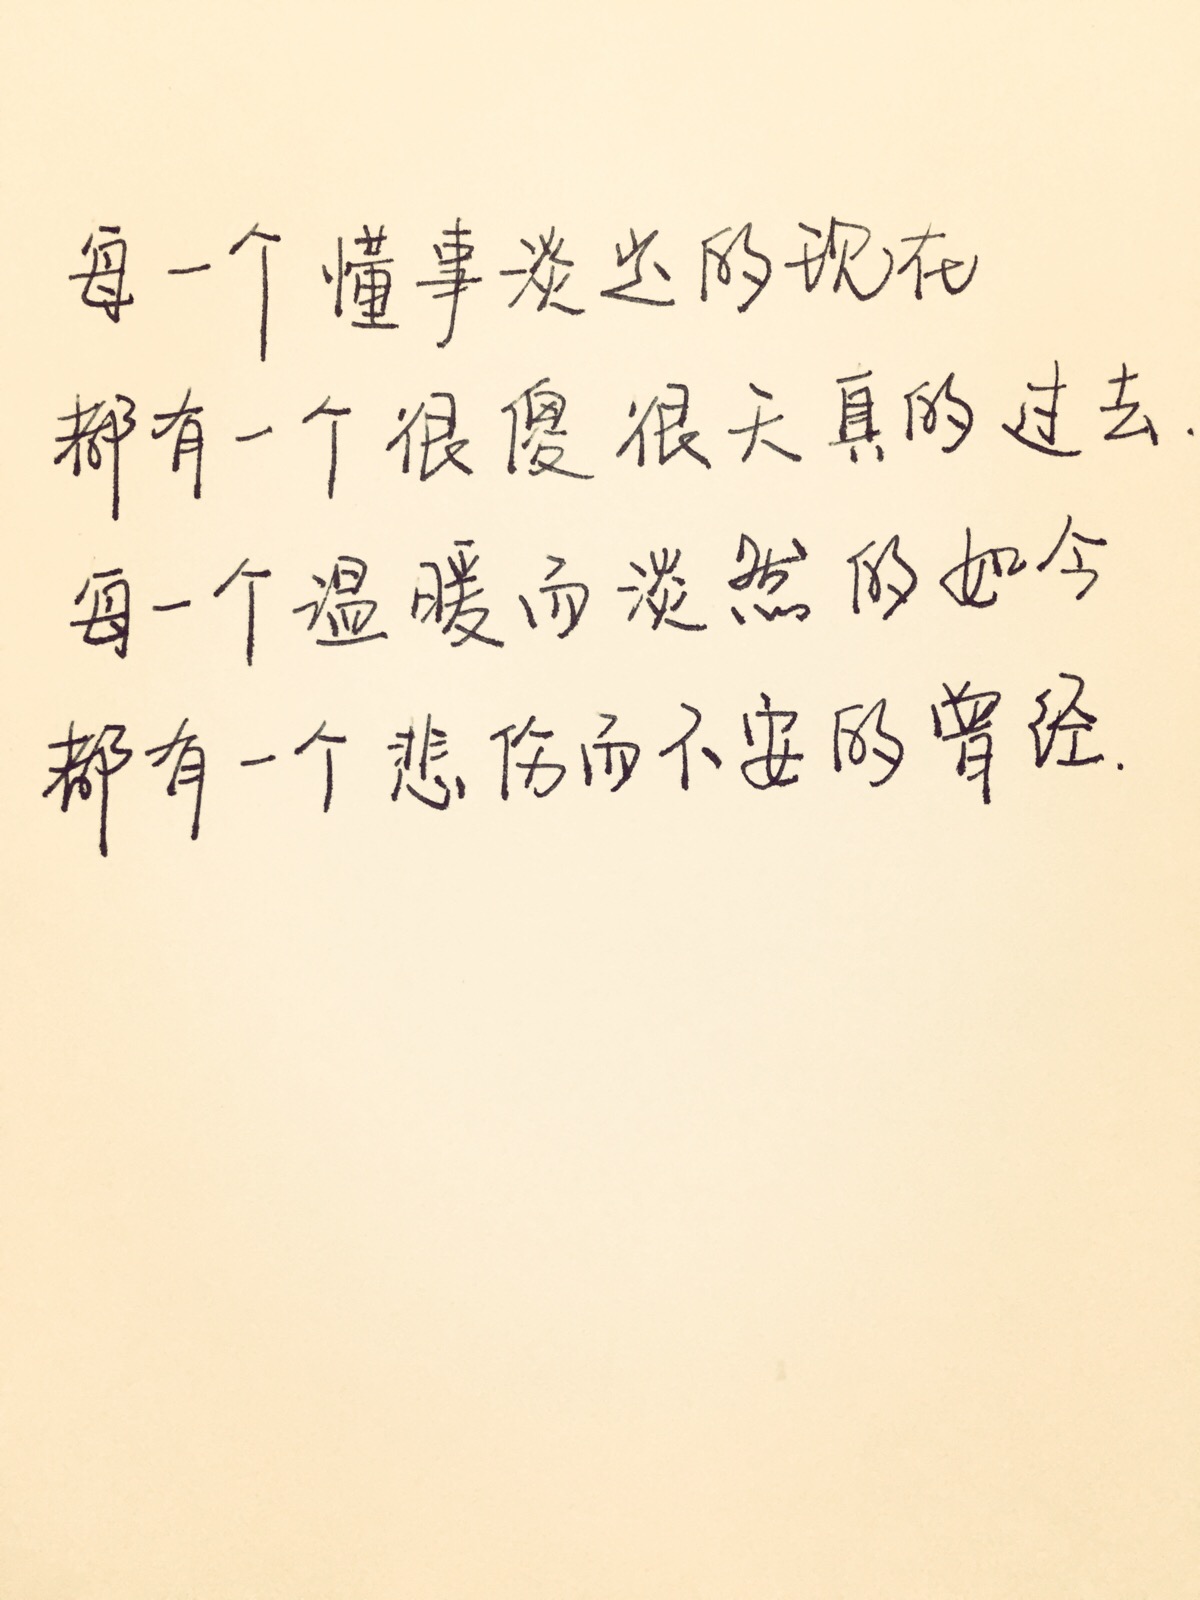 每一个懂事淡定的现在
都有一个很傻很天真的过去.
每一个温暖而淡然的如今
都有一个悲伤而不安的曾经.